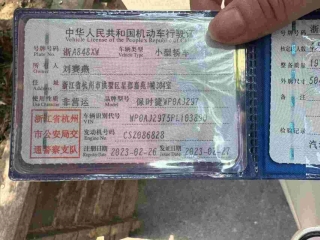 中华人民共和国机动车行驶证
Vehicle License of the People's Republic of China
号牌号码 浙A848XW 车辆类型 小型轿车
Plate No. Vehicle Type
所有人 刘赛燕
Owner
住址
Address
使用性质 非营运 品牌型号 保时捷WP0AJ297
Use Character Model
浙江省杭州
市公安局交
通警察支队
车辆识别代号
VIN
发动机号码 CSZ086828
Engine No.
注册日期 2023-02-26 发证日期 2023-02-27
Register Date Issue Date